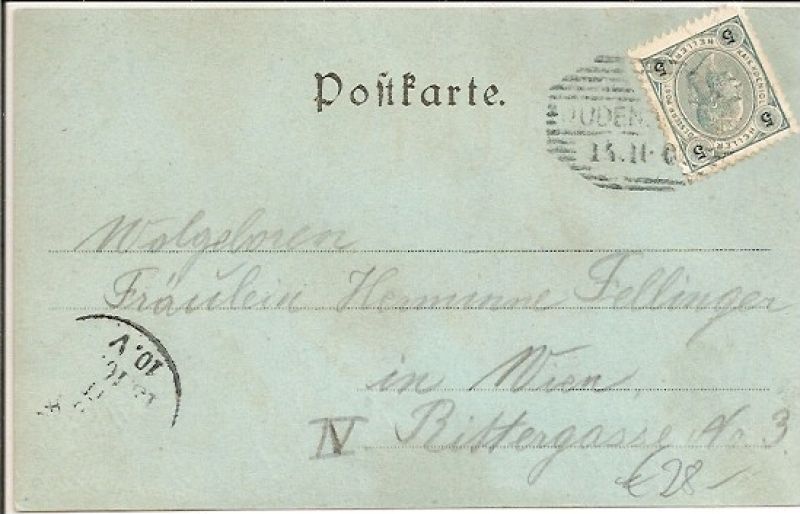 Postkarte.
5 HELLER 5
JUDEN
14.11.0
Wolgeboren
Fräulein Hermine Fellinger
in Wien
IV Rittergasse No 3
€ 28.-
10.V